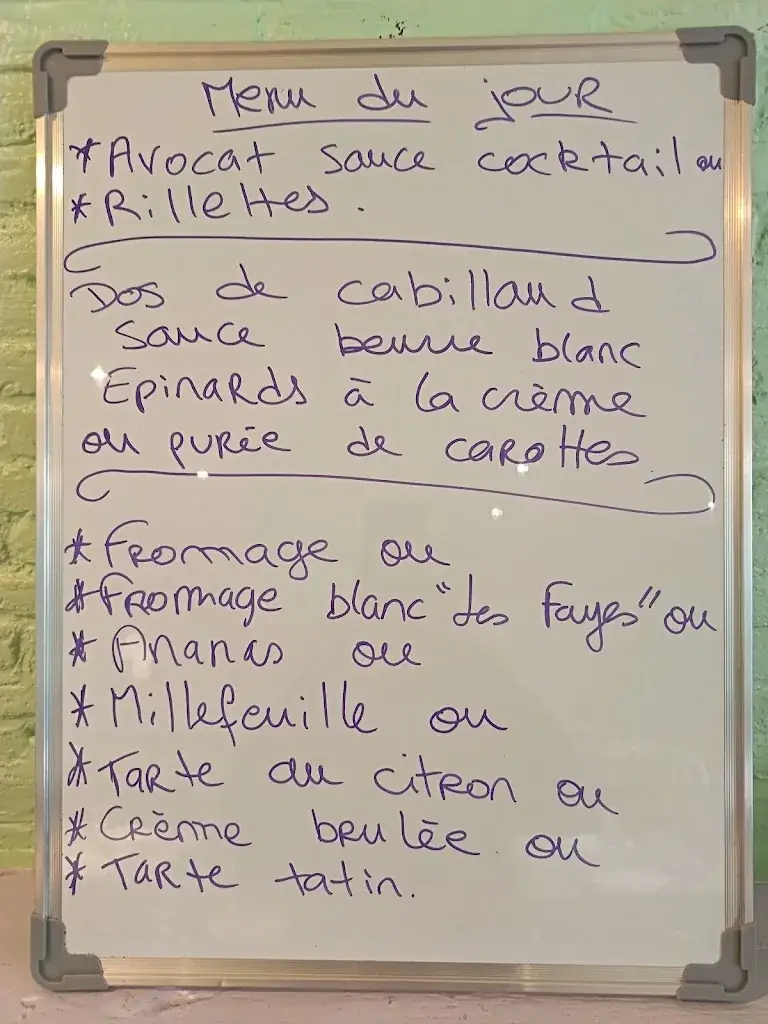 Menu du jour
* Avocat sauce cocktail ou
* Rillettes.
Dos de cabillaud
sauce beurre blanc
Epinards à la crème
ou purée de carottes
* Fromage ou
* Fromage blanc "des Fayes" ou
* Ananas ou
* Millefeuille ou
* Tarte au citron ou
* Crème brulée ou
* Tarte tatin.